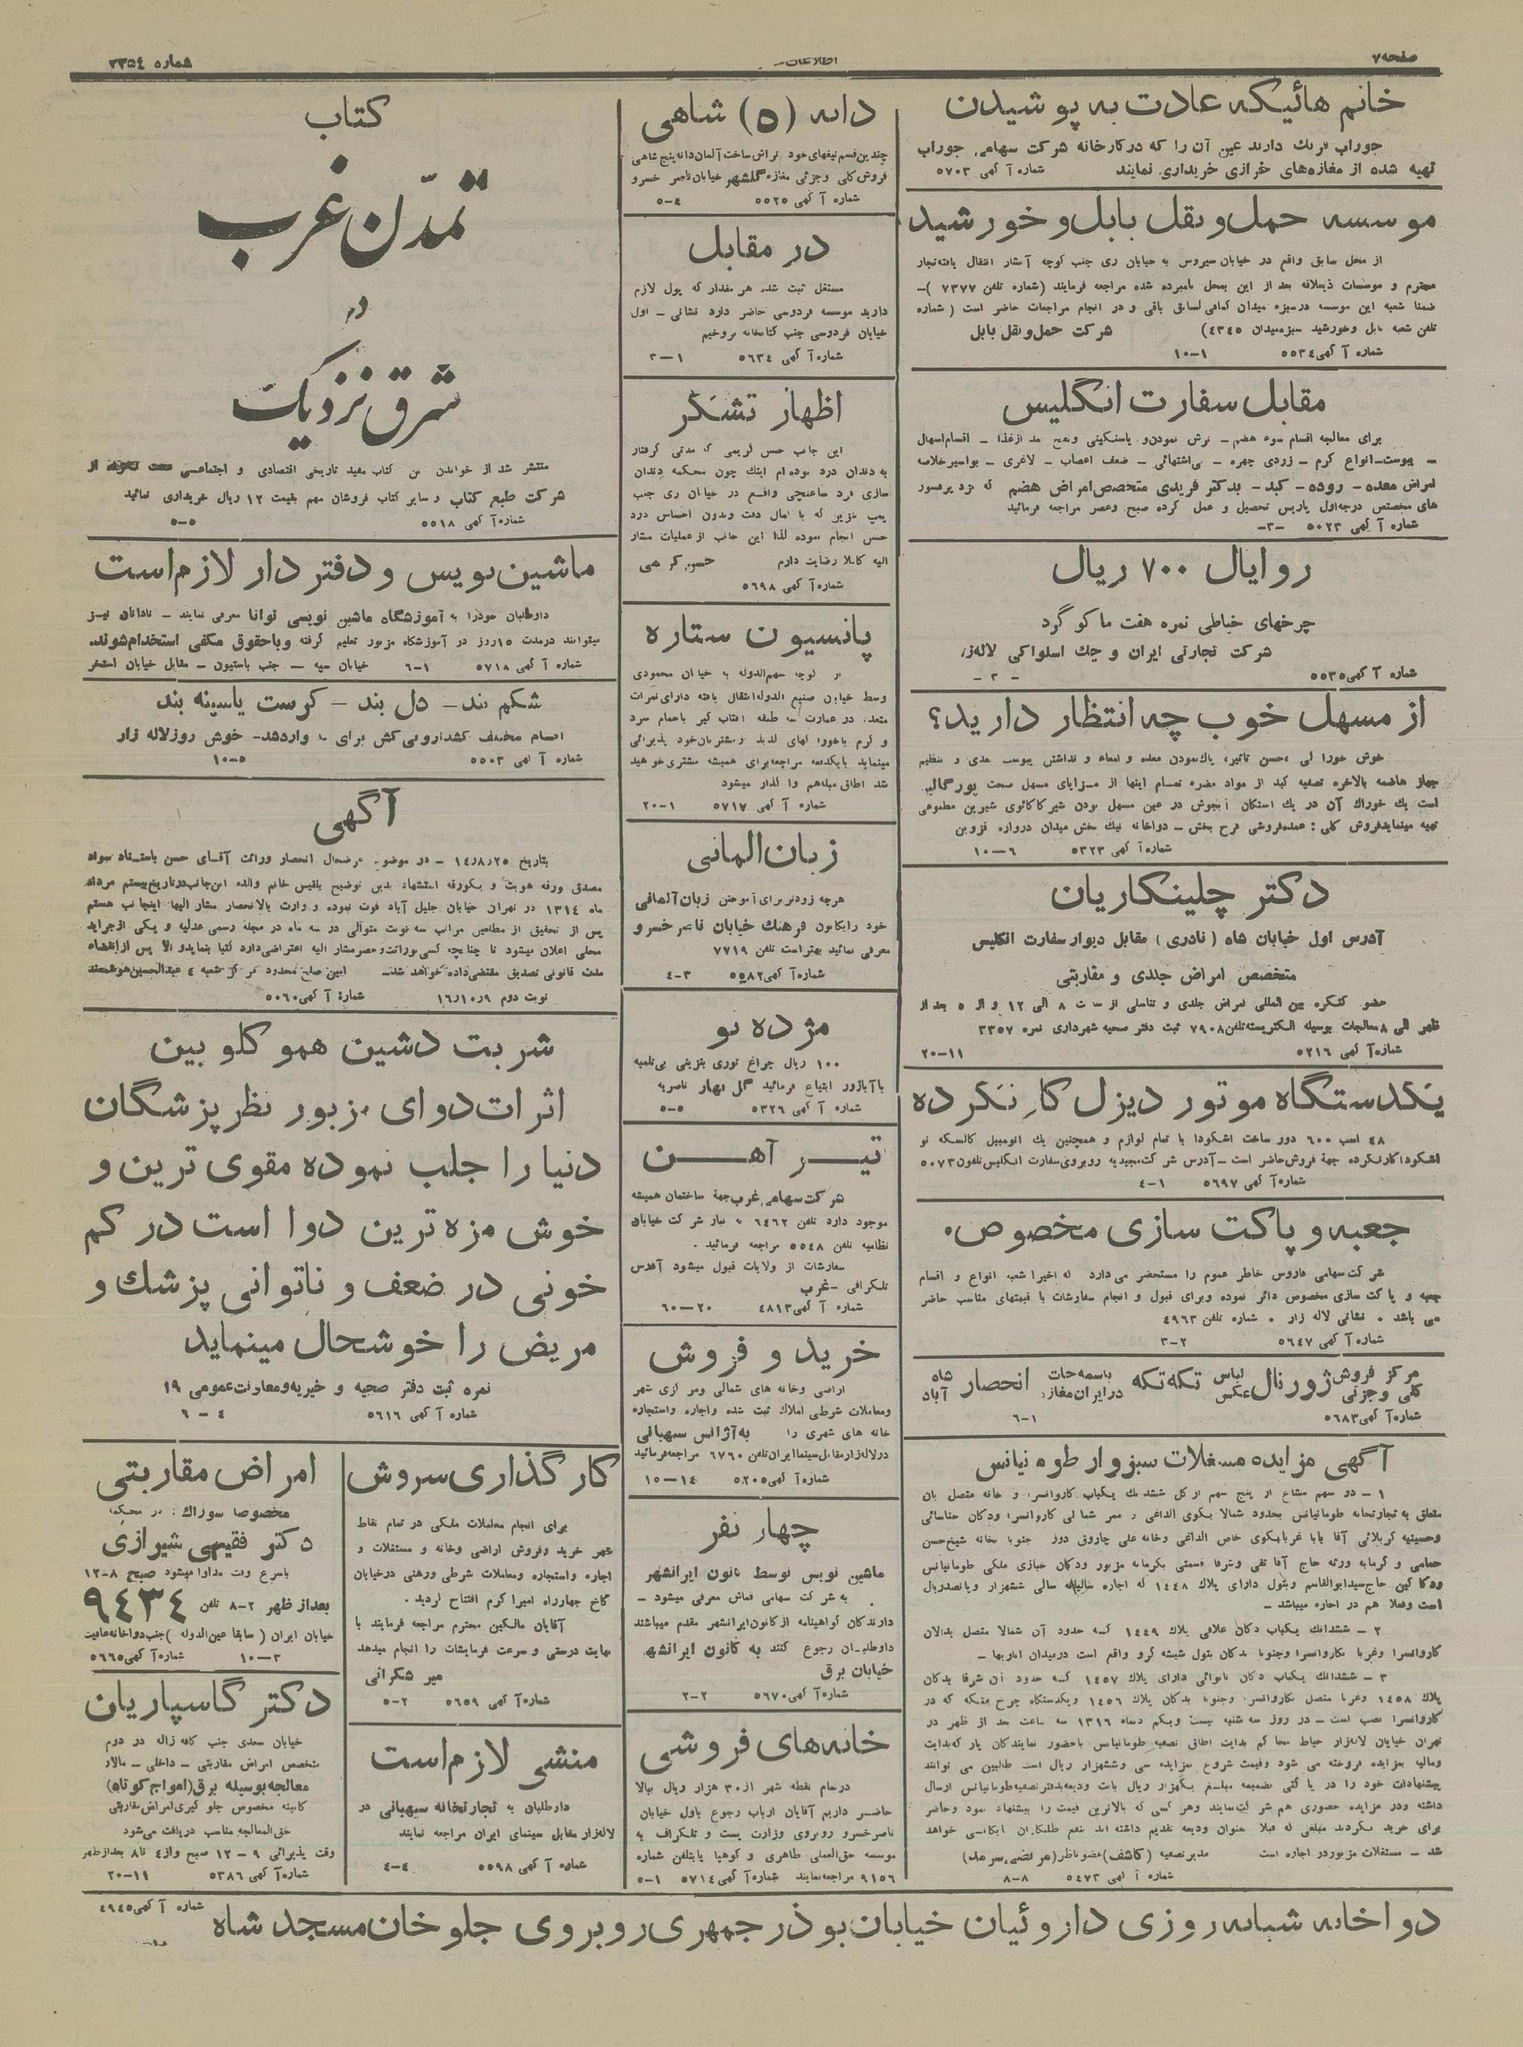 صفحه ۷
اطلاعات
شماره ۳۳۵۴
خانم هائیکه عادت به پوشیدن
جوراب نازك دارند عین آن را که درکارخانه شرکت سهامی جوراب
تهیه شده از مغازه‌های خرازی خریداری نمایند شماره آگهی ۵۷۰۳
موسسه حمل و نقل بابل و خورشید
از محل سابق واقع در خیابان سیروس به خیابان ری جنب کوچه آبشار انتقال یافته تجار
محترم و موسسات ذیعلاقه بعد از این بمحل نامبرده شده مراجعه فرمایند (شماره تلفن ۷۳۷۷)-
ضمنا شعبه این موسسه درسبزه میدان کمافی‌السابق باقی و در انجام مراجعات حاضر است (شماره
تلفن شعبه بابل وخورشید سبزه‌میدان ۴۳۴۵) شرکت حمل‌و‌نقل بابل
شماره آگهی ۵۵۳۴ ۱-۱۰
مقابل سفارت انگلیس
برای معالجه اقسام سوء هضم - ترش نمودن و یاسنگینی ونفخ بعد ازغذا - اقسام اسهال
- یبوست-انواع کرم - زردی چهره - بی‌اشتهائی - ضعف اعصاب - لاغری - بواسیرخلاصه
امراض معده- روده- کبد- بدکتر فریدی متخصص‌امراض هضم که نزد پرفسور
های متخصص درجه‌اول پاریس تحصیل و عمل کرده صبح وعصر مراجعه فرمائید
شماره آگهی ۵۰۲۳ -۳-
روایال ۷۰۰ ریال
چرخهای خیاطی نمره هفت ماکو گرد
شرکت تجارتی ایران و چك اسلواکی لاله‌زار
شماره آگهی ۵۵۳۵ - ۳ -
از مسهل خوب چه انتظار دارید؟
خوش خوراکی ،حسن تأثیر، پاك‌نمودن معده و امعاء و نداشتن یبوست بعدی و تنظیم
جهاز هاضمه بالاخره تصفیه کبد از مواد مضره تمام اینها از مزایای مسهل صحت پورگالین
است یك خوراك آن در یك استکان آبجوش در عین مسهل بودن شیر کاکائوی شیرین مطبوعی
تهیه مینماید‌فروش کلی: عمده‌فروشی فرح بخش - دواخانه نیك بخش میدان دروازه قزوین
شماره آگهی ۵۳۲۳ ۶-۱۰
دکتر چلینگاریان
آدرس اول خیابان شاه (نادری) مقابل دیوار سفارت انگلیس
متخصص امراض جلدی و مقاربتی
حضو کنگره بین المللی امراض جلدی و تناسلی از ساعت ۸ الی ۱۲ و از ۵ بعد از
ظهر الی ۸ معالجات بوسیله الکتریسته‌تلفن ۷۹۰۸ ثبت دفتر صحیه شهرداری نمره ۳۳۵۷
شماره آگهی ۵۲۱۶ ۱۱-۲۰
یکدستگاه موتور دیزل کار نکرده
۴۸ اسب ۶۰۰ دور ساخت اشکودا با تمام لوازم و همچنین یك اتومبیل کالسکه نو
اشکودا کارنکرده جهة فروش‌حاضر است-آدرس شرکت مجیدیه روبروی سفارت انگلیس‌تلفون ۵۰۷۳
شماره آگهی ۵۶۹۷ ۱-۴
جعبه و پاکت سازی مخصوص
شرکت سهامی فاروس خاطر عموم را مستحضر می‌دارد که اخیرا شعبه انواع و اقسام
جعبه و پاکت سازی مخصوص دائر نموده وبرای قبول و انجام سفارشات با قیمتهای مناسب حاضر
می باشد . نشانی لاله زار . شماره تلفن ۴۹۶۳
شماره آگهی ۵۶۴۷ ۲-۳
مرکز فروش کلی وجزئی ژورنال لباس عکس تکه‌تکه باسمه‌جات درایران‌مغازه انحصار شاه آباد
شماره آگهی ۵۶۸۳ ۱-۶
آگهی مزایده مستغلات سبزوار طومانیانس
۱ - دو سهم مشاع از پنج سهم از کل ششدانگ یکباب کاروانسرا و خانه متصل بان
متعلق به تجارتخانه طومانیانس بحدود شمالا بکوی الداغی و ممر شمالی کاروانسرا ودکان حناسائی
وحسینیه کربلائی آقا بابا غربابکوی خاص الداغی وخانه علی چاروق دوز جنوبا بخانه شیخ‌حسن
حمامی و گرمابه ورثه حاج آقا تقی وشرقا قسمتی بگرمابه مزبور ودکان خبازی ملکی طومانیانس
ودکاکین حاج‌سیدابوالقاسم وبتول دارای پلاك ۱۴۴۸ که اجاره سالیانه سالی ششهزار وپانصدریال
است وفعلا هم در اجاره میباشد -
۲ - ششدانك یکباب دکان علافی پلاك ۱۴۴۹ که حدود آن شمالا متصل بدالان
کاروانسرا وغربا بکاروانسرا وجنوبا بدکان بتول شیشه گرو واقع است درمیدان انباربها -
۳ - ششدانك یکباب دکان نانوائی دارای پلاك ۱۴۵۷ که حدود آن شرقا بدکان
پلاك ۱۴۵۸ وغربا متصل بکاروانسرا وجنوبا بدکان پلاك ۱۴۵۶ ویکدستگاه چرخ پنبه‌که در
کاروانسرا نصب است - در روز سه شنبه بیست ویکم دیماه ۱۳۱۶ سه ساعت بعد از ظهر در
تهران خیابان لاله‌زار حیاط محاکم بدایت اطاق تصفیه طومانیانس باحضور نمایندگان پارکه‌بدایت
ومالیه بمزایده فروخته می شود وقیمت شروع مزایده سی وششهزار ریال است طالبین می توانند
پیشنهادات خود را در پاکتی ضمیمه مبلغ یکهزار ریال بابت ودیعه‌بدفتر تصفیه‌طومانیانس ارسال
داشته ودر مزایده حضوری هم شرکت‌نمایند وهر کسی که بالاترین قیمت را پیشنهاد نمود وحاضر
برای خرید نگردید مبلغی که قبلا بعنوان ودیعه تقدیم داشته اند بنفع طلبکاران ابقائی خواهد
شد - مستغلات مزبوردر اجاره است مدیرتصفیه (کاشف) عضو ناظر (مرتضی سرمد)
شماره آگهی ۵۴۷۳ ۸-۸
دانه (۵) شاهی
چندین‌قسم تیغهای خود تراش ساخت آلمان دانه پنج شاهی
فروش کلی وجزئی مغازه گلشهر خیابان ناصر خسرو
شماره آگهی ۵۵۲۵ ۴-۵
در مقابل
مستغل ثبت شده هر مقدار که پول لازم
دارید موسسه فردوسی حاضر دارد نشانی - اول
خیابان فردوسی جنب کتابخانه بروخیم
شماره آگهی ۵۶۳۴ ۱-۳
اظهار تشکر
این جانب حسن کریمی که مدتی گرفتار
به دندان درد بوده‌ام اینك چون محکمه دندان
سازی فرد ساعتچی واقع در خیابان ری جنب
پمپ بنزین که با کمال دقت وبدون احساس درد
حسن انجام نموده لذا این جانب از عملیات مشار
الیه کاملا رضایت دارم حسن کریمی
شماره آگهی ۵۶۹۸
پانسیون ستاره
از کوچه سهم‌الدوله به خیابان محمودی
وسط خیابان صنیع الدوله انتقال یافته دارای نمرات
متعدد در عمارت سه طبقه افتاب گیر باحمام سرد
و گرم باخوراکهای لذیذ ازمشتریان‌خود پذیرائی
مینماید بایکدفعه مراجعه‌برای همیشه مشتری خواهید
شد اطاق مبله‌هم واگذار میشود
شماره آگهی ۵۷۱۷ ۱-۲۰
زبان المانی
هرچه زودتر برای آموختن زبان آلمانی
خود رابکانون فرهنك خیابان ناصر خسرو
معرفی نمائید بهتراست تلفن ۷۷۱۹
شماره آگهی ۵۵۸۲ ۳-۴
مژده نو
۱۰۰ ریال چراغ توری بنزینی بی‌تلمبه
باآباژور ابتیاع فرمائید گل بهار ناصریه
شماره آگهی ۵۳۲۶ ۵-۵
تیر آهن
شرکت سهامی غرب‌جهة ساختمان همیشه
موجود دارد تلفن ۶۴۶۲ انبار شرکت خیابان
نظامیه تلفن ۵۵۴۸ مراجعه فرمائید .
سفارشات از ولایات قبول میشود آدرس
تلگرافی - غرب
شماره آگهی ۴۸۱۳ ۲۰-۶۰
خرید و فروش
اراضی وخانه های شمالی ومرکزی شهر
ومعاملات شرطی املاك ثبت شده واجاره واستجاره
خانه های شهری را به‌آژانس سبهبانی
درلاله‌زار مقابل سینما ایران تلفن ۶۷۶۰ مراجعه فرمائید
شماره آگهی ۵۲۰۵ ۱۴-۱۵
چهار نفر
ماشین نویس توسط کانون ایرانشهر
به شرکت سهامی قماش معرفی میشود -
دارندگان گواهینامه ازکانون ایرانشهر مقدم میباشند
داوطلبان رجوع کنند به کانون ایرانشهر
خیابان برق
شماره آگهی ۵۶۷۰ ۲-۲
خانه‌های فروشی
درتمام نقطه شهر از ۳۰ هزار ریال ببالا
حاضر داریم آقایان ارباب رجوع باول خیابان
ناصرخسرو روبروی وزارت پست و تلگراف به
موسسه حق‌العملی طاهری و کوهپا یابتلفن شماره
۹۱۵۶ مراجعه‌نمایند شماره آگهی ۵۷۱۴ ۱-۵
کتاب
تمدّن غرب
در
شرق نزدیک
منتشر شد از خواندن این کتاب مفید تاریخی اقتصادی و اجتماعی غفلت ننموده از
شرکت طبع کتاب و سایر کتاب فروشان مهم بقیمت ۱۲ ریال خریداری نمائید
شماره آگهی ۵۵۱۸ ۵-۵
ماشین نویس و دفتر دار لازم است
داوطلبان خودرا به آموزشگاه ماشین نویسی توانا معرفی نمایند - نادانان نیز
میتوانند درمدت ۱۵ روز در آموزشگاه مزبور تعلیم گرفته وباحقوق مکفی استخدام‌شوند.
شماره آگهی ۵۷۱۸ ۱-۶ خیابان سپه - جنب پاستیون - مقابل خیابان استخر
شکم بند - دل بند - کرست یاسینه بند
اقسام مختلف کشدار وبی‌کش برای ما واردشد- خوش روز لاله زار
شماره آگهی ۵۵۰۳ ۵-۱۰
آگهی
بتاریخ ۱۴٫۸٫۲۵ - در موضوع عرضحال انحصار وراثت آقای حسن باستناد سواد
مصدق ورقه هویت و یکورقه استشهاد بدین توضیح بلقیس خانم والده این‌جانب‌درتاریخ‌بیستم مرداد
ماه ۱۳۱۴ در تهران خیابان جلیل آباد فوت نموده و وارث بالانحصار مشار الیها اینجانب هستم
پس از تحقیق از مطلعین مراتب سه نوبت متوالی در سه ماه در مجله رسمی عدلیه و یکی ازجراید
محلی اعلان میشود تا چنانچه کسی بوراثت‌وحصرمشار الیه اعتراضی‌دارد کتبا بنماید‌و‌الا پس ازانقضاء
مدت قانونی تصدیق مقتضی‌داده خواهد شد- امین صلح محدود مرکز شعبه ۴ عبدالحسین هوشمند
نوبت دوم ۱۶٫۱۰٫۹ شمارهٔ آگهی ۵۰۶۰
شربت دشین هموگلوبین
اثرات دوای مزبور نظر پزشگان
دنیا را جلب نموده مقوی ترین و
خوش مزه ترین دوا است در کم
خونی در ضعف و ناتوانی پزشك و
مریض را خوشحال مینماید
نمره ثبت دفتر صحیه و خیریه‌ومعاونت‌عمومی ۱۹
شماره آگهی ۵۶۱۶ ۴-۶
کارگذاری سروش
برای انجام معاملات ملکی در تمام نقاط
شهر خرید وفروش اراضی وخانه و مستغلات و
اجاره واستجاره ومعاملات شرطی ورهنی درخیابان
کاخ چهارراه امیراکرم افتتاح گردید .
آقایان مالکین محترم مراجعه فرمایند با
نهایت درستی و سرعت فرمایشات را انجام میدهد
میر شکرائی
شماره آگهی ۵۶۵۹ ۲-۵
منشی لازم است
داوطلبان به تجارتخانه سبهبانی در
لاله‌زار مقابل سینمای ایران مراجعه نمایند
شماره آگهی ۵۵۹۸ ۴-۴
امراض مقاربتی
مخصوصا سوزاك: در محکمه
دکتر فقیهی شیرازی
باسرع وقت مداوا میشود صبح ۸-۱۲
بعداز ظهر ۲-۸ تلفن ۹۴۳۴
خیابان ایران (سابقا عین‌الدوله) جنب‌دواخانه‌عافیت
۳-۱۰ شماره آگهی ۵۶۶۵
دکتر گاسپاریان
خیابان سعدی جنب کافه ژاله در دوم
متخصص امراض مقاربتی - داخلی - مالار
معالجه بوسیله برق(امواج کوتاه)
کابینه مخصوص جلوگیری امراض مقاربتی
حق‌المعالجه مناسب دریافت می‌شود
وقت پذیرائی ۹-۱۲ صبح واز ۴ تا ۸ بعدازظهر
شماره آگهی ۵۳۸۶ ۱۱-۲۰
دواخانه شبانه‌روزی داروئیان خیابان‌بوذرجمهری‌روبروی جلوخان‌مسجد شاه شماره آگهی ۴۹۴۵